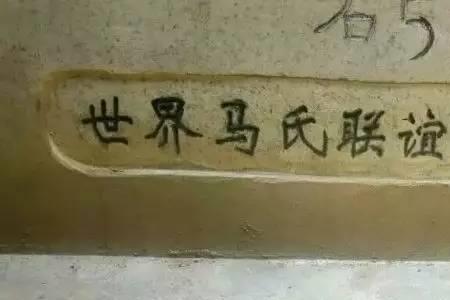 右5
世界马氏联谊